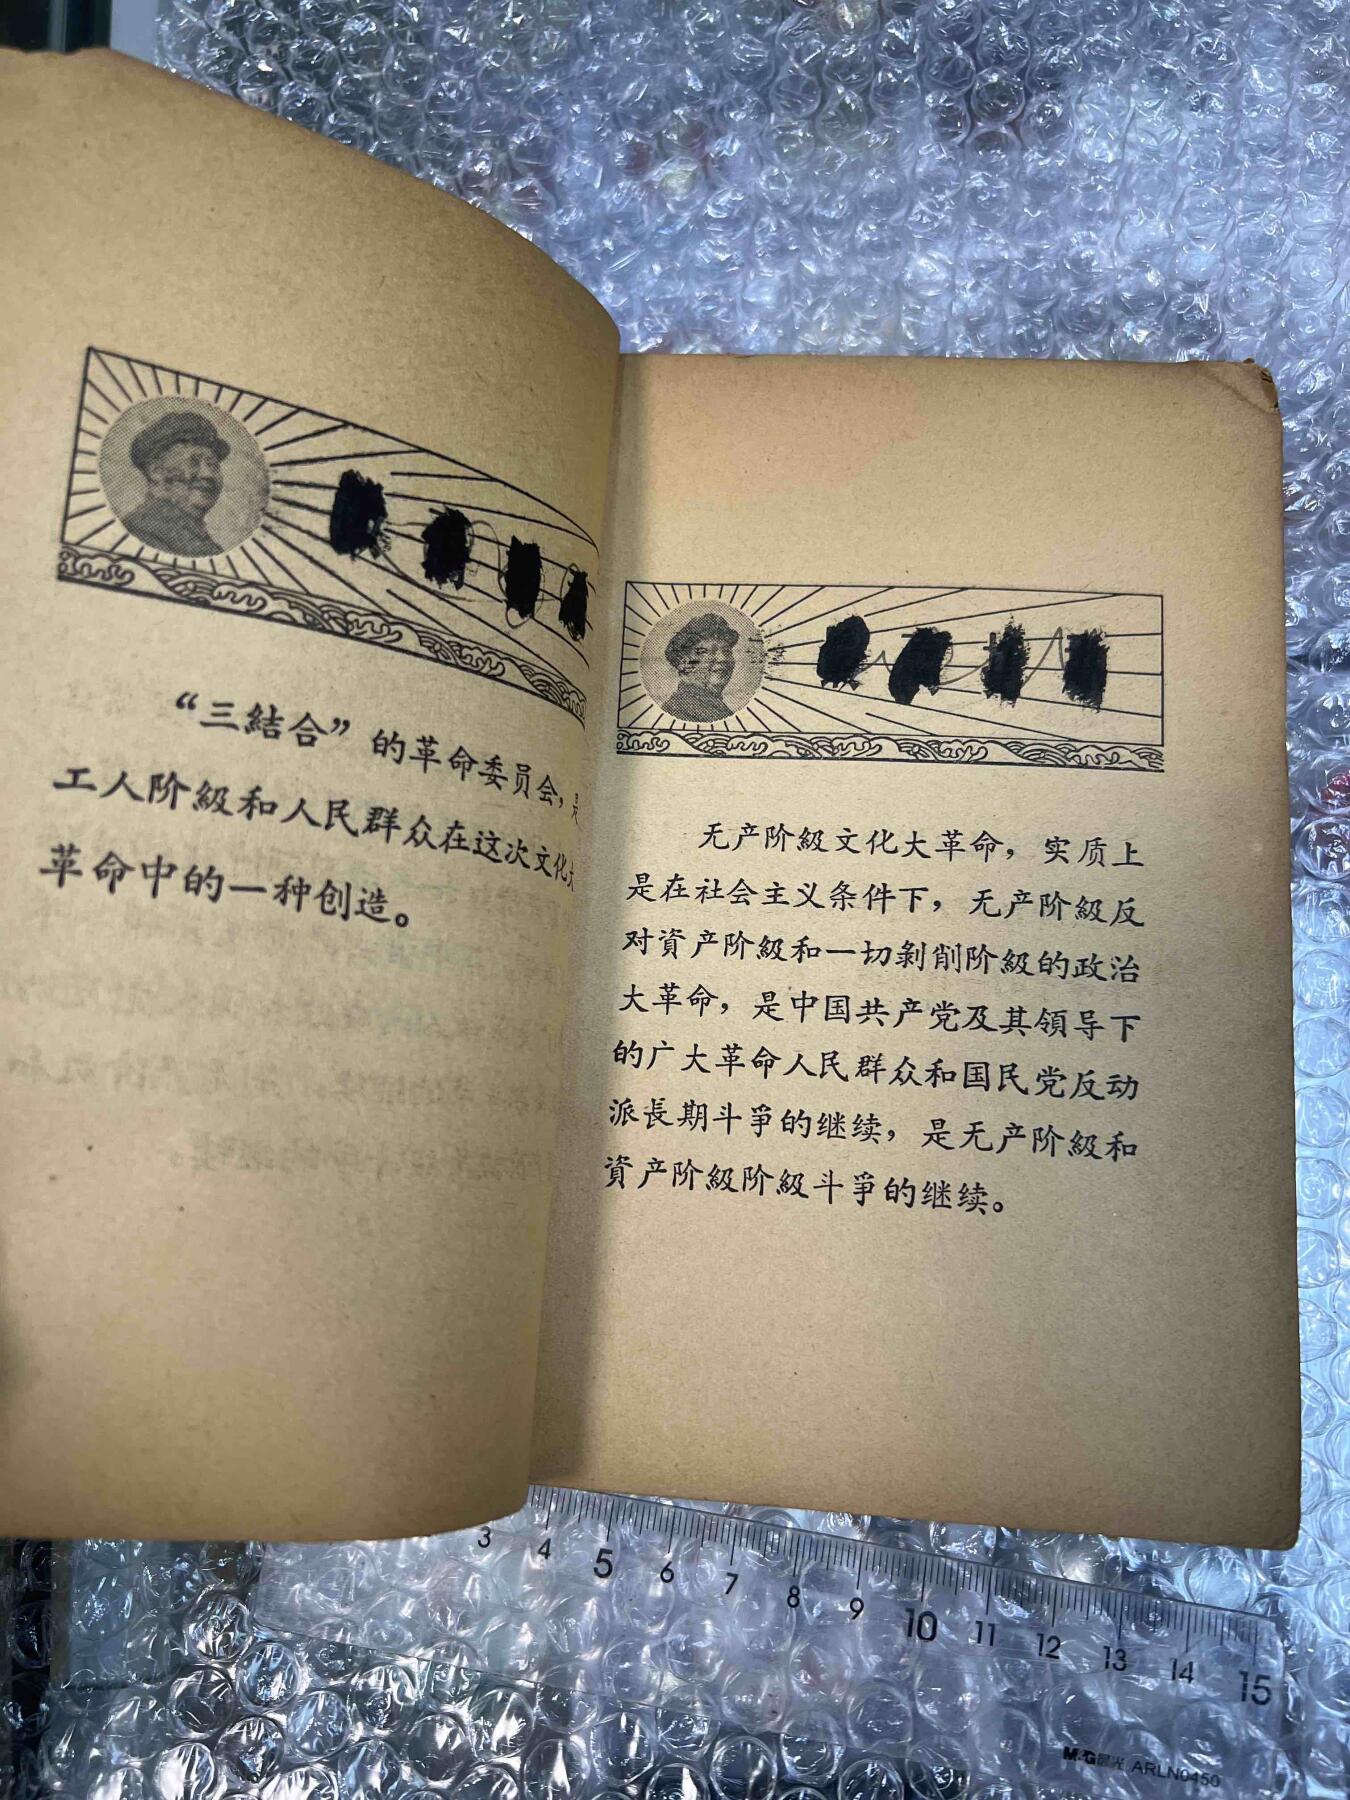 “三結合”的革命委员会，是
工人阶級和人民群众在这次文化大
革命中的一种创造。
无产阶級文化大革命，实质上
是在社会主义条件下，无产阶級反
对資产阶級和一切剝削阶級的政治
大革命，是中国共产党及其領导下
的广大革命人民群众和国民党反动
派長期斗爭的继续，是无产阶級和
資产阶級阶級斗爭的继续。
3 4 5 6 7 8 9 10 11 12 13 14 15
M&G晨光 ARLN0450